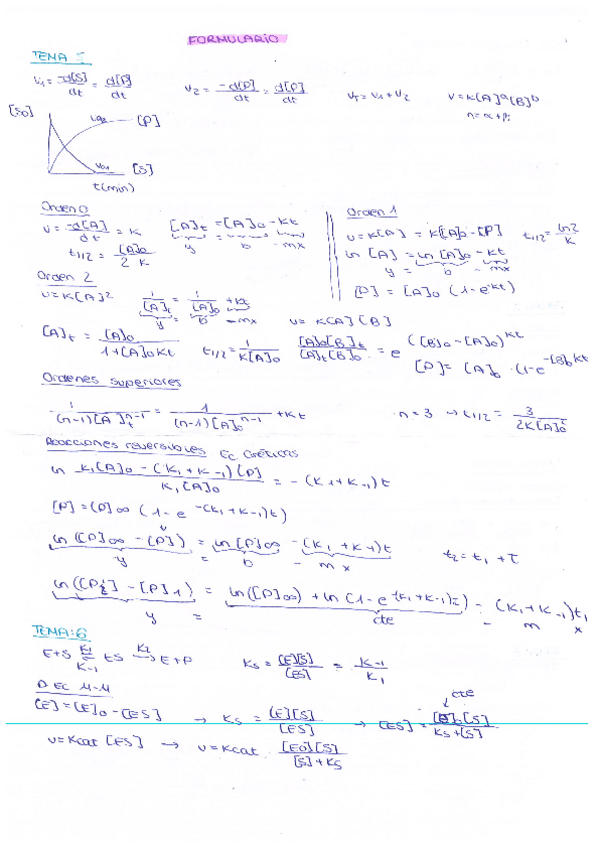 FORMULARIO
TEMA 5
v₁ = -d[S]/dt = d[P]/dt    v₂ = -d[P]/dt = d[P]/dt    v_T = v₁ + v₂    v = K[A]ᵅ[B]ᵇ
n = α + β;
[S₀]
[P]
[S]
t(min)
Orden 0
v = -d[A]/dt = K    [A]t = [A]₀ - Kt
y = b - mx
t₁/₂ = [A]₀/2K
Orden 1
v = K[A] = K[A]₀ - [P]    t₁/₂ = ln2/K
ln [A] = ln [A]₀ - Kt
y = b - mx
[P] = [A]₀ (1 - e^Kt)
Orden 2
v = K[A]²    1/[A]t = 1/[A]₀ + Kt    v = K[A][B]
y = b - mx
[A]t = [A]₀/1 + [A]₀Kt    t₁/₂ = 1/K[A]₀    [A]₀[B]t/[A]t[B]₀ = e^([B]₀ - [A]₀)Kt
[P] = [A]₀ · (1 - e^-[B]₀Kt)
Ordenes superiores
1/(n-1)[A]t^n-1 = 1/(n-1)[A]₀^n-1 + Kt    · n = 3 → t₁/₂ = 3/2K[A]₀²
Reacciones reversibles Ec cinéticas
ln K₁[A]₀ - (K₁ + K₋₁)[P]/K₁[A]₀ = -(K₁ + K₋₁)t
[P] = [P]∞ (1 - e^-(K₁ + K₋₁)t)
ln([P]∞ - [P]) = ln[P]∞ - (K₁ + K₋₁)t    t₂ = t₁ + τ
y = b - m x
ln([P]₂ - [P]₁) = ln([P]∞) + ln(1 - e^-(K₁ + K₋₁)τ) - (K₁ + K₋₁)t₁
y = cte - m x
TEMA: 6
E + S K₁/K₋₁ ES K₂→ E + P    Ks = [E][S]/[ES] = K₋₁/K₁
D EC M-M
cte
[E] = [E]₀ - [ES] → Ks = [E][S]/[ES] → [ES] = [E]₀[S]/Ks + [S]
v = Kcat [ES] → v = Kcat · [E₀][S]/[S] + Ks